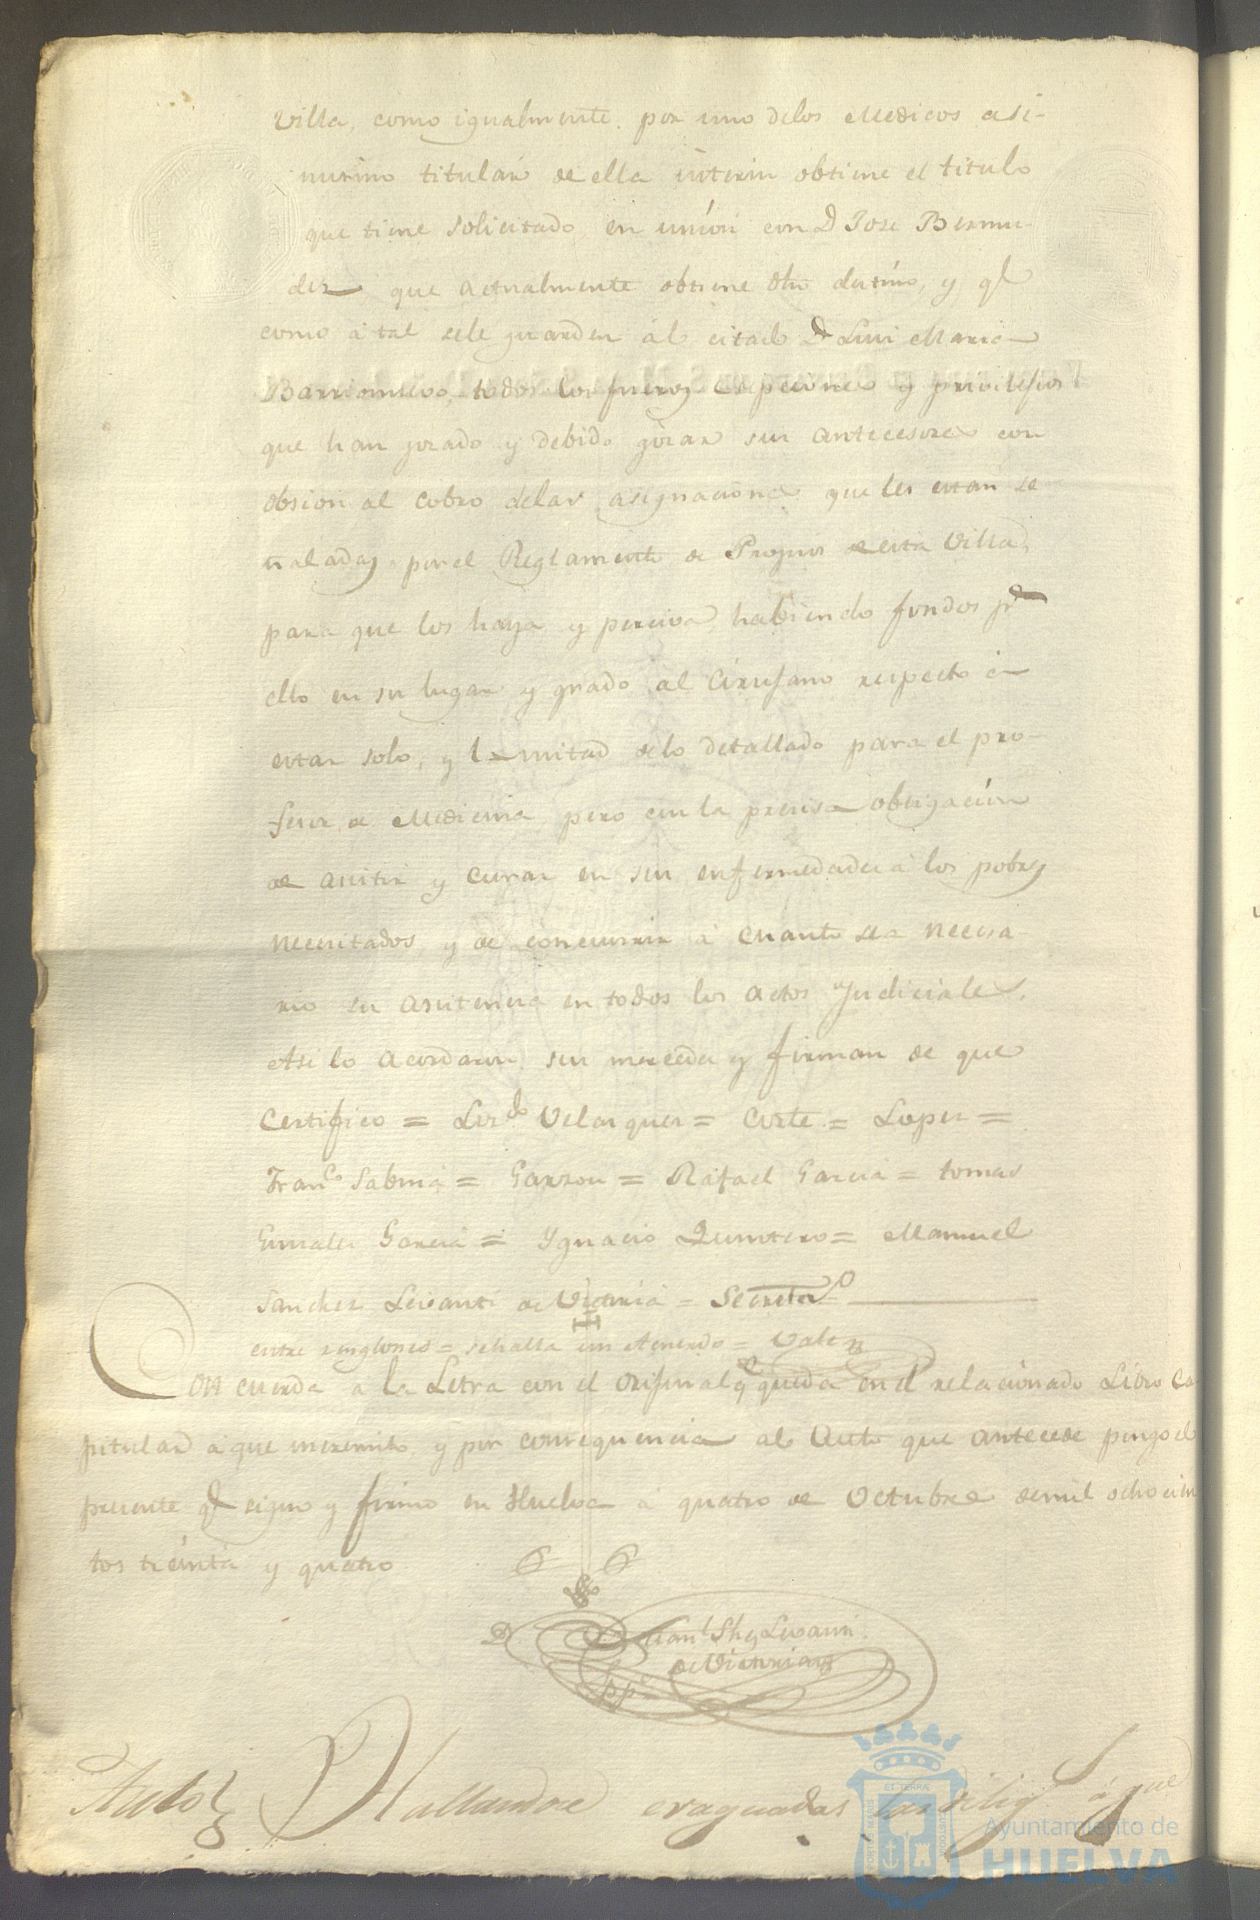 Villa, como igualmente por uno delos Medicos asi-
mismo titular de ella interin obtiene el titulo
que tiene solicitado, en unión con D Jose Bermu-
dez que actualmente obtiene dho destino, y ql
como á tal sele guarden al citado D Luis Maria
Barrionuevo, todos los fueros esepciones y privilegios
que han gozado y debido gozar sus antecesores con
obsion al cobro delas asignaciones que les estan se
ñaladas por el Reglamento de Propios de esta Villa,
para que los haya y perciva habiendo fondos pa
ello en su lugar y grado al Cirujano respecto á
estar solo, y la mitad delo detallado para el pro-
fesor de Medicina pero con la precisa obligación
de asistir y curar en sus enfermedades á los pobres
necesitados, y de concurrir á cuanto sea necesa-
rio su asistencia en todos los actos Judiciales.
Asi lo acordaron sus mercedes y firman de que
Certifico = Lizdo Velazquez = Corte = Lopez =
Franco Sabina = Garzon = Rafael Garcia = tomas
Gonzalez Garcia = Ygnacio Quintero = Manuel
Sanchez Lisanti de Victoria = Secreto
entre renglones = sehalla un Acuerdo = Vale
Concuerda a la Letra con el original qe queda en el relacionado Libro Ca
pitular á que meremito y por consequencia al Auto que antecede pongo el
presente ql signo y firmo en Huelva á quatro de Octubre demil ochocien
tos treinta y quatro
D Manl Shz Lisanti
de Victoria
Auto Hallandose evaquadas las diligs á que
Ayuntamiento de
HUELVA